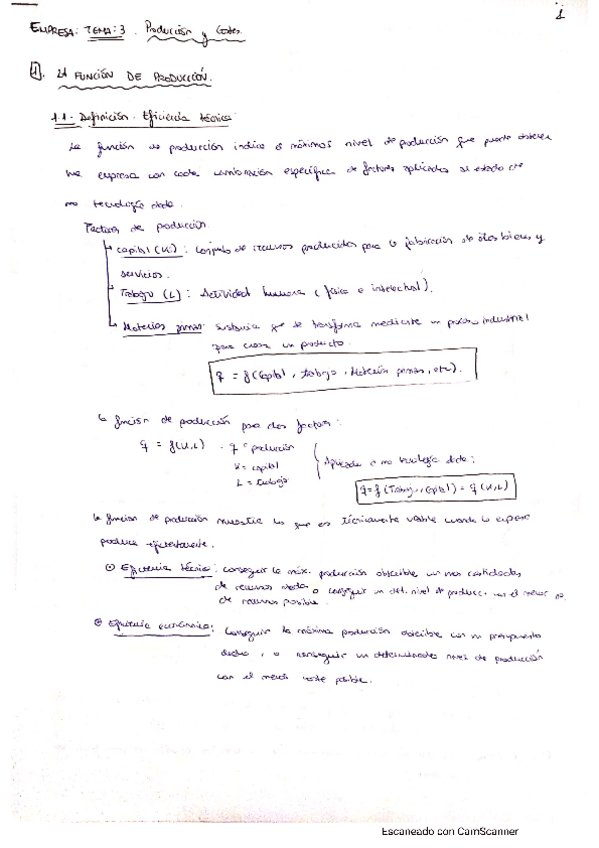 1
EMPRESA: TEMA: 3. Producción y Costes.
1. LA FUNCIÓN DE PRODUCCIÓN.
1.1. Definición. Eficiencia técnica:
La función de producción indica el máximo nivel de producción que puede obtener
una empresa con cada combinación específica de factores aplicados al estado de
una tecnología dada.
Factores de producción
capital (K): Conjunto de recursos producidos para la fabricación de otros bienes y
servicios.
Trabajo (L): Actividad humana (física e intelectual).
Materias primas: Sustancia que se transforma mediante un proceso industrial
para crear un producto.
q = f(Capital, trabajo, Materias primas, etc).
La función de producción para dos factores:
q = f(K,L) . q = producción
K = capital
L = trabajo
Aplicada a una tecnología dada:
q = f (Trabajo, Capital) = q (K,L)
La función de producción muestra lo que es técnicamente viable cuando la empresa
produce eficientemente.
Eficiencia técnica: conseguir la máx. producción obtenible con unas cantidades
de recursos dada o conseguir un det. nivel de producc. con el menor nº
de recursos posible.
Eficiencia económica: Conseguir la máxima producción obtenible con un presupuesto
dado, o conseguir un determinado nivel de producción
con el menor coste posible.
Escaneado con CamScanner